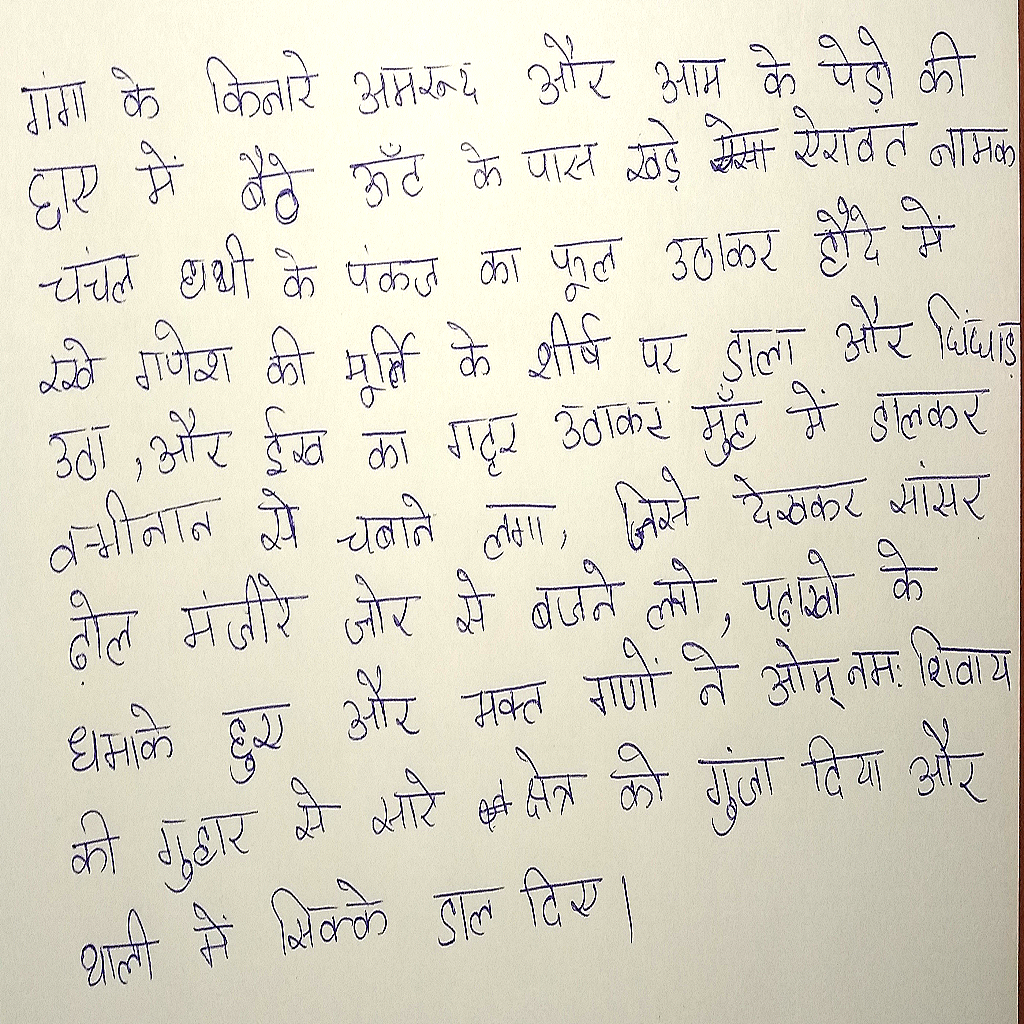 गंगा के किनारे अमरूद और आम के पेड़ो की
छाए में बैठे ऊँट के पास खड़े ऐरावत नामक
चंचल हाथी के पंकज का फूल उठाकर हौदे में
रखे गणेश की मूर्ति के शीर्ष पर ड़ाला और चिंघाड़
उठा, और ईख का गट्ठर उठाकर मुँह में डालकर
से चबाने लगा, जिसे देखकर
ढ़ोल मंजीरे जोर से बजने लगे, के
धमाके हुए और भक्त गणों ने ओम् नमः शिवाय
की गुहार से सारे क्षेत्र को गुंजा दिया और
थाली में सिक्के डाल दिए।